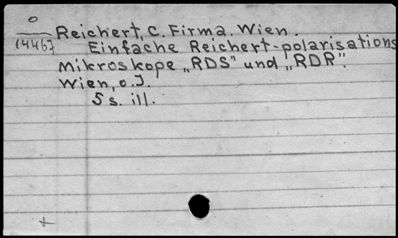 o
14467
Reichert, C. Firma. Wien.
Einfache Reichert-polarisations
Mikroskope „RDS" und „RDR".
Wien, o. J.
5 s. ill.